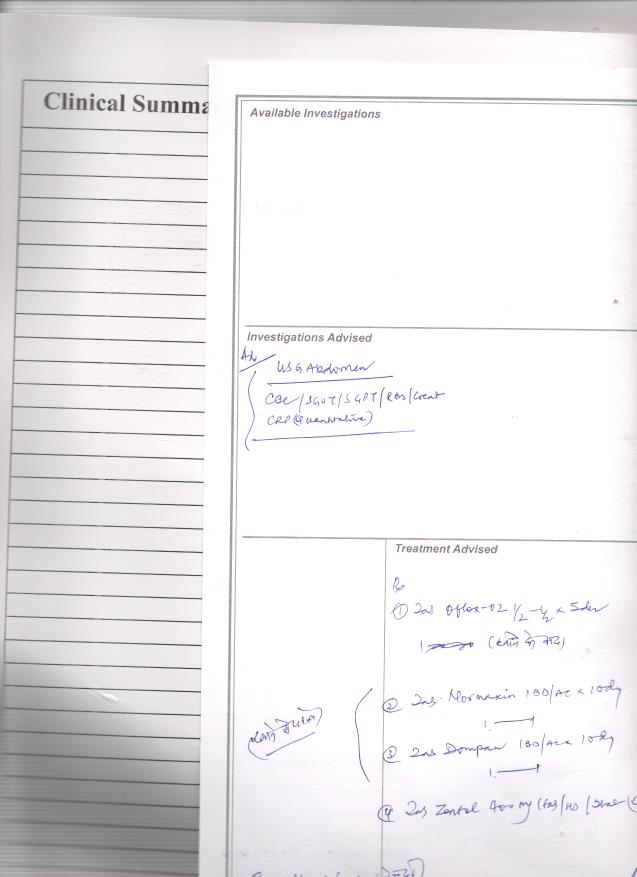 Clinical Summa
Available Investigations
Investigations Advised
USG Abdomen
CBC/SGOT/SGPT/RBS/Creat
CRP (Quantitative)
Treatment Advised
Rx
① Tab Oflox-OZ ½-½ x 5day
(खाने के बाद)
② Tab. Normaxin 1BD/AC x 10dy
खाने से पहले
③ Tab Dompan 1BD/AC x 10dy
④ Tab Zentel 400 mg